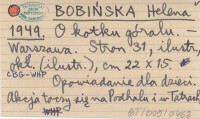 BOBIŃSKA Helena
1949. O kotku góralu. –
Warszawa. Stron 31, ilustr.,
okł. (ilustr.), cm 22 x 15.
CBG-WHP
Opowiadanie dla dzieci.
Akcja toczy się na Podhalu i w Tatrach
WHP